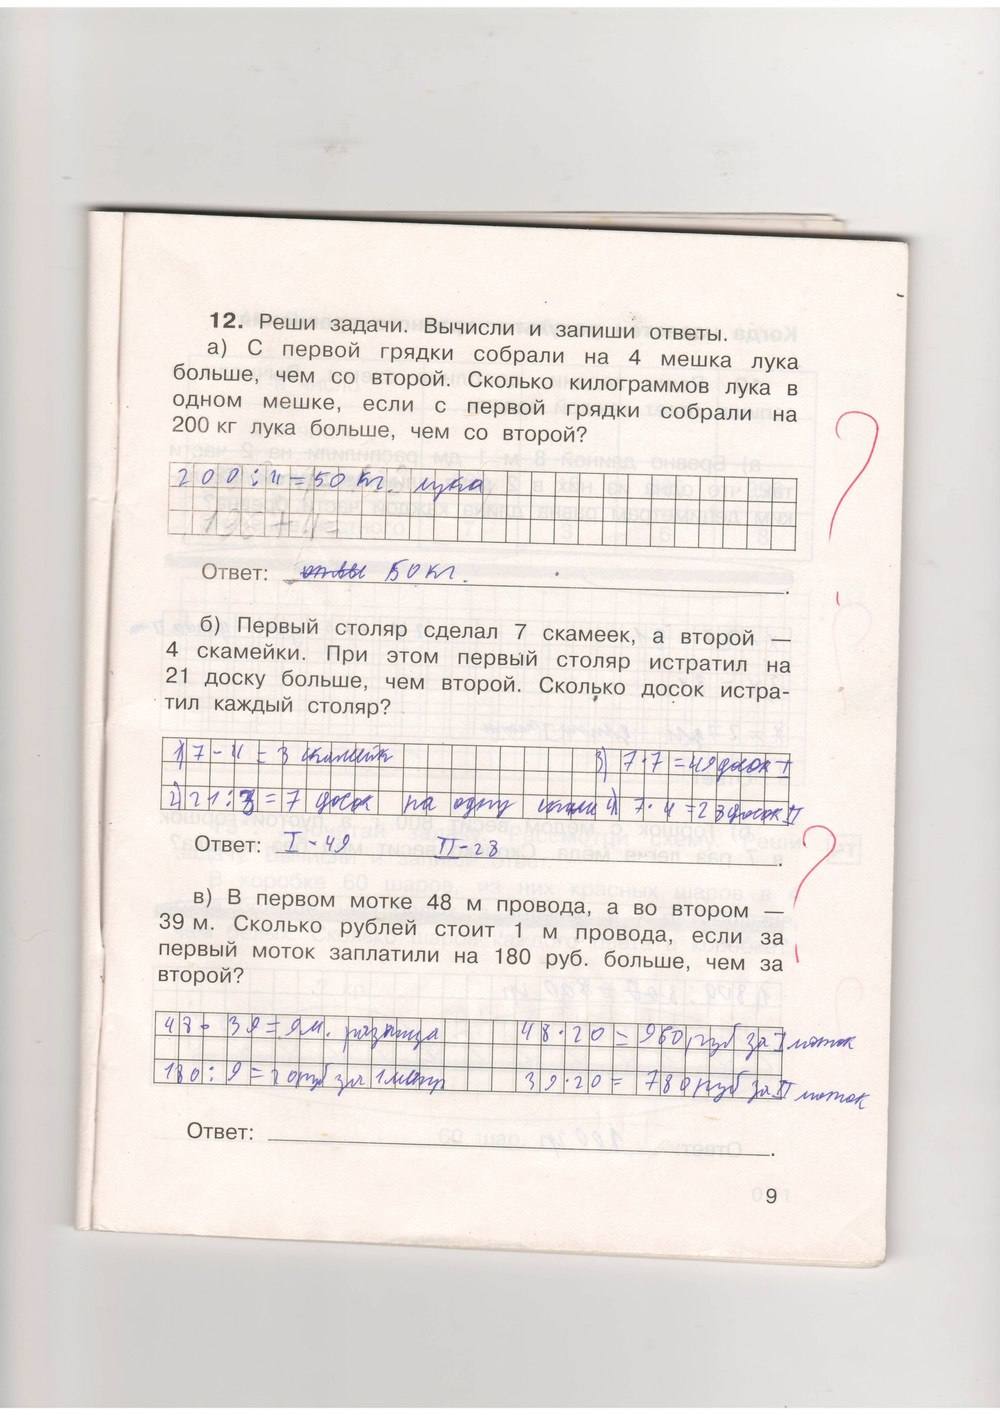 12. Реши задачи. Вычисли и запиши ответы.
а) С первой грядки собрали на 4 мешка лука
больше, чем со второй. Сколько килограммов лука в
одном мешке, если с первой грядки собрали на
200 кг лука больше, чем со второй?
200:4=50 кг. лука
Ответ: 50 кг.
б) Первый столяр сделал 7 скамеек, а второй —
4 скамейки. При этом первый столяр истратил на
21 доску больше, чем второй. Сколько досок истра-
тил каждый столяр?
1) 7-4=3 скамейк 3) 7·7=49 досок I
2) 21:3=7 досок на одну 4) 7·4=28 досок II
Ответ: I-49 II-28
в) В первом мотке 48 м провода, а во втором —
39 м. Сколько рублей стоит 1 м провода, если за
первый моток заплатили на 180 руб. больше, чем за
второй?
48-39=9м. разница 48·20=960 руб за I моток
180:9=20 руб за 1 метр 39·20=780 руб за II моток
Ответ:
9